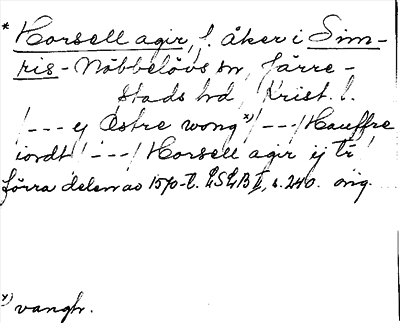 * Horsell agir, f. åker i Sim-
ris-Nöbbelövs sn, Järre-
stads hd, Krist. l.
/---ej Østre wong x)/---/Hauffre
iordt/---/Horsell agir ij tr/
förra delen av 1570-t. LSLB II, s. 240. orig.
x) vanghr.